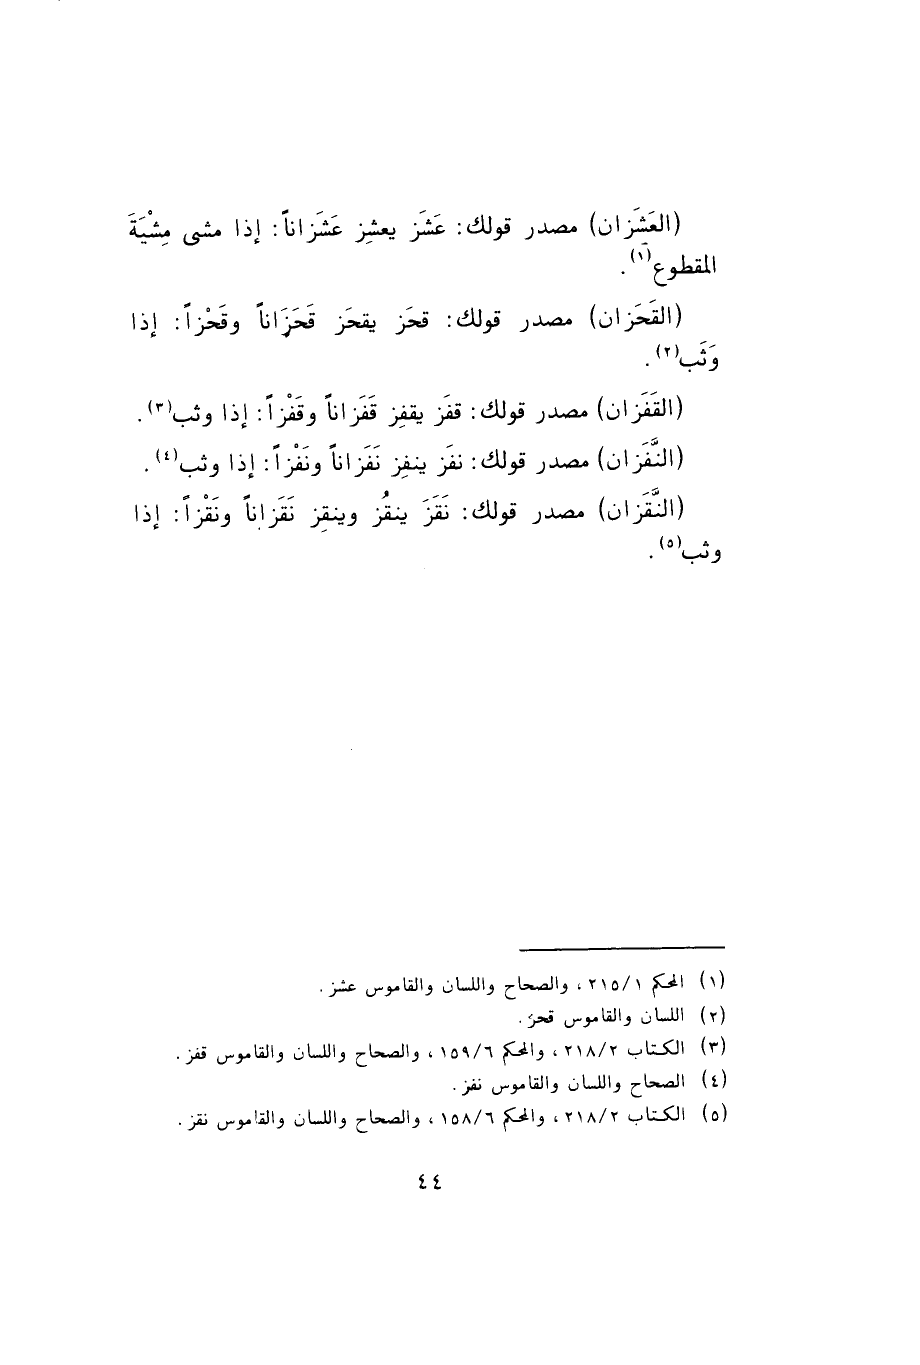 (العَشَزان) مصدر قولك: عَشَز يعشِز عَشَزاناً: إذا مشى مِشْيَةَ
المقطوع(١).
(القَحَزان) مصدر قولك: قحَز يقحَز قَحَزَاناً وقَحْزاً: إذا
وَثَب(٢).
(القَفَزان) مصدر قولك: قفَز يقفِز قَفَزاناً وقَفْزاً: إذا وثب(٣).
(النَّفَزان) مصدر قولك: نفَز ينفِز نَفَزاناً ونَفْزاً: إذا وثب(٤).
(النَّقَزان) مصدر قولك: نَقَزَ ينقُز وينقِز نَقَزاناً ونَقْزاً: إذا
وثب(٥).
(١) المحكم ٢١٥/١، والصحاح واللسان والقاموس عشز.
(٢) اللسان والقاموس قحز.
(٣) الكتاب ٢١٨/٢، والمحكم ١٥٩/٦، والصحاح واللسان والقاموس قفز.
(٤) الصحاح واللسان والقاموس نفز.
(٥) الكتاب ٢١٨/٢، والمحكم ١٥٨/٦، والصحاح واللسان والقاموس نقز.
٤٤